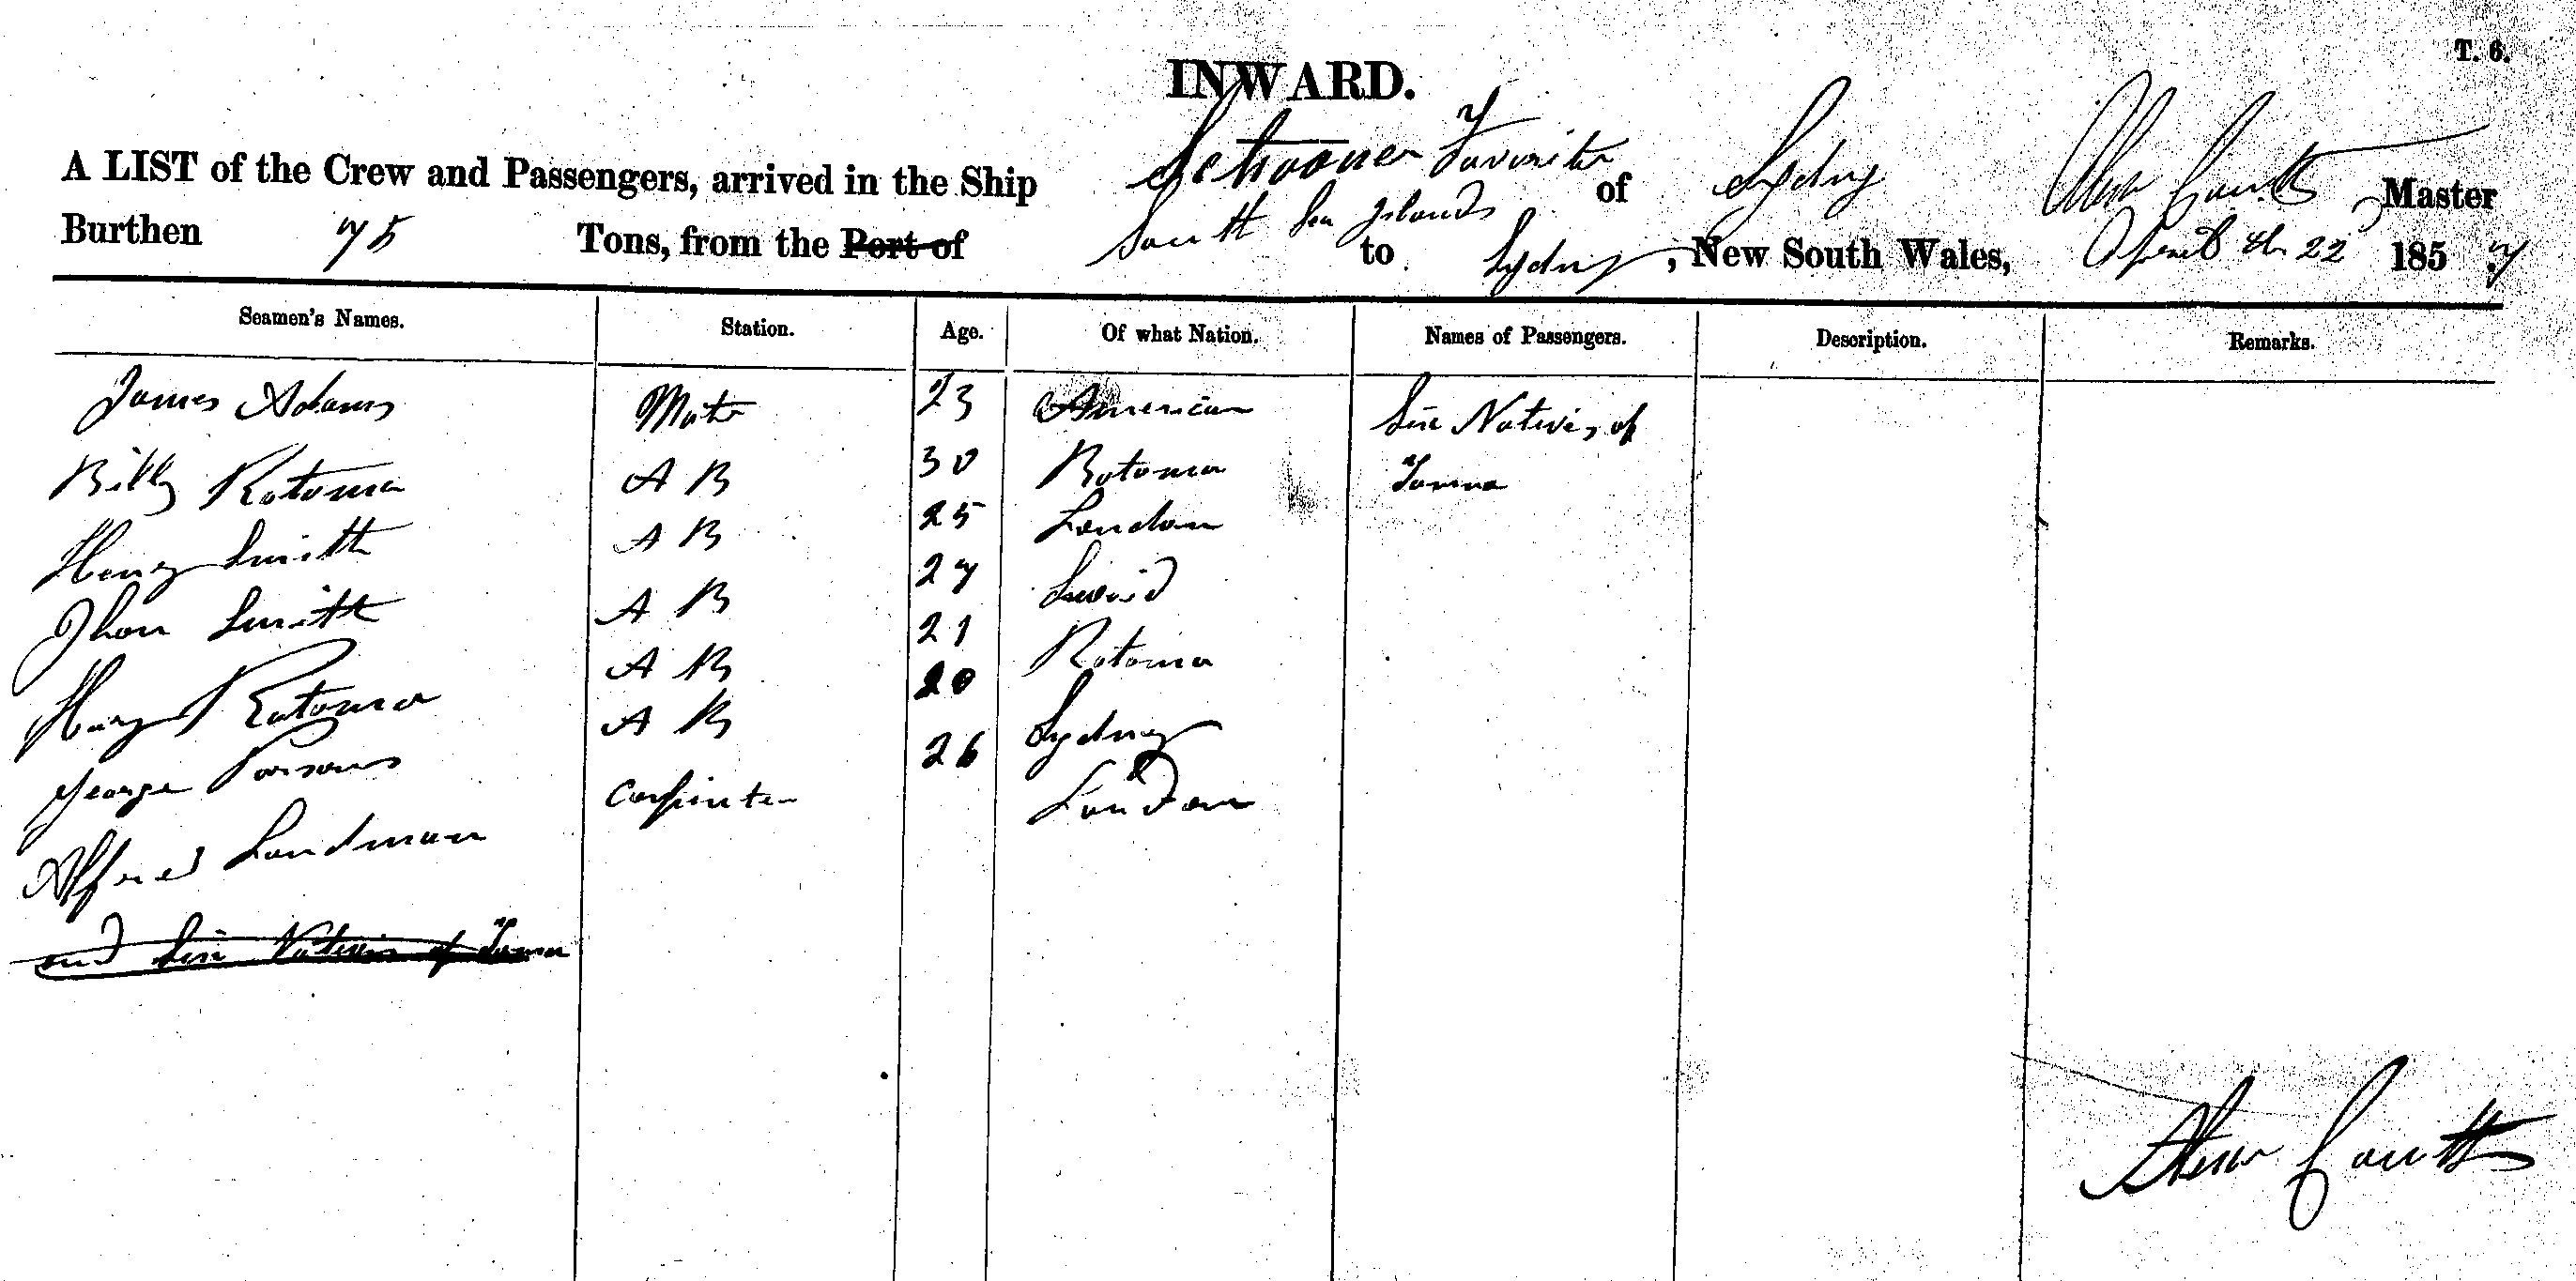 T. 6.
INWARD.
A LIST of the Crew and Passengers, arrived in the Ship Schooner Favorite of Sydny Master
Burthen 75 Tons, from the Port of South Sea Islands to Sydny, New South Wales, April th 22 1857
Seamen's Names. Station. Age. Of what Nation. Names of Passengers. Description. Remarks.
James Adams Mate 23 American Natives of
Billy Rotoma A B 30 Rotoma Tanna
Henry Smith A B 25 London
Jhon Smith A B 27 Sweid
Harry Rotoma A B 21 Rotoma
George Parsons A B 20 Sydney
Alfred Landman Carpinter 26 London
and Natives of Tanna
Coutts